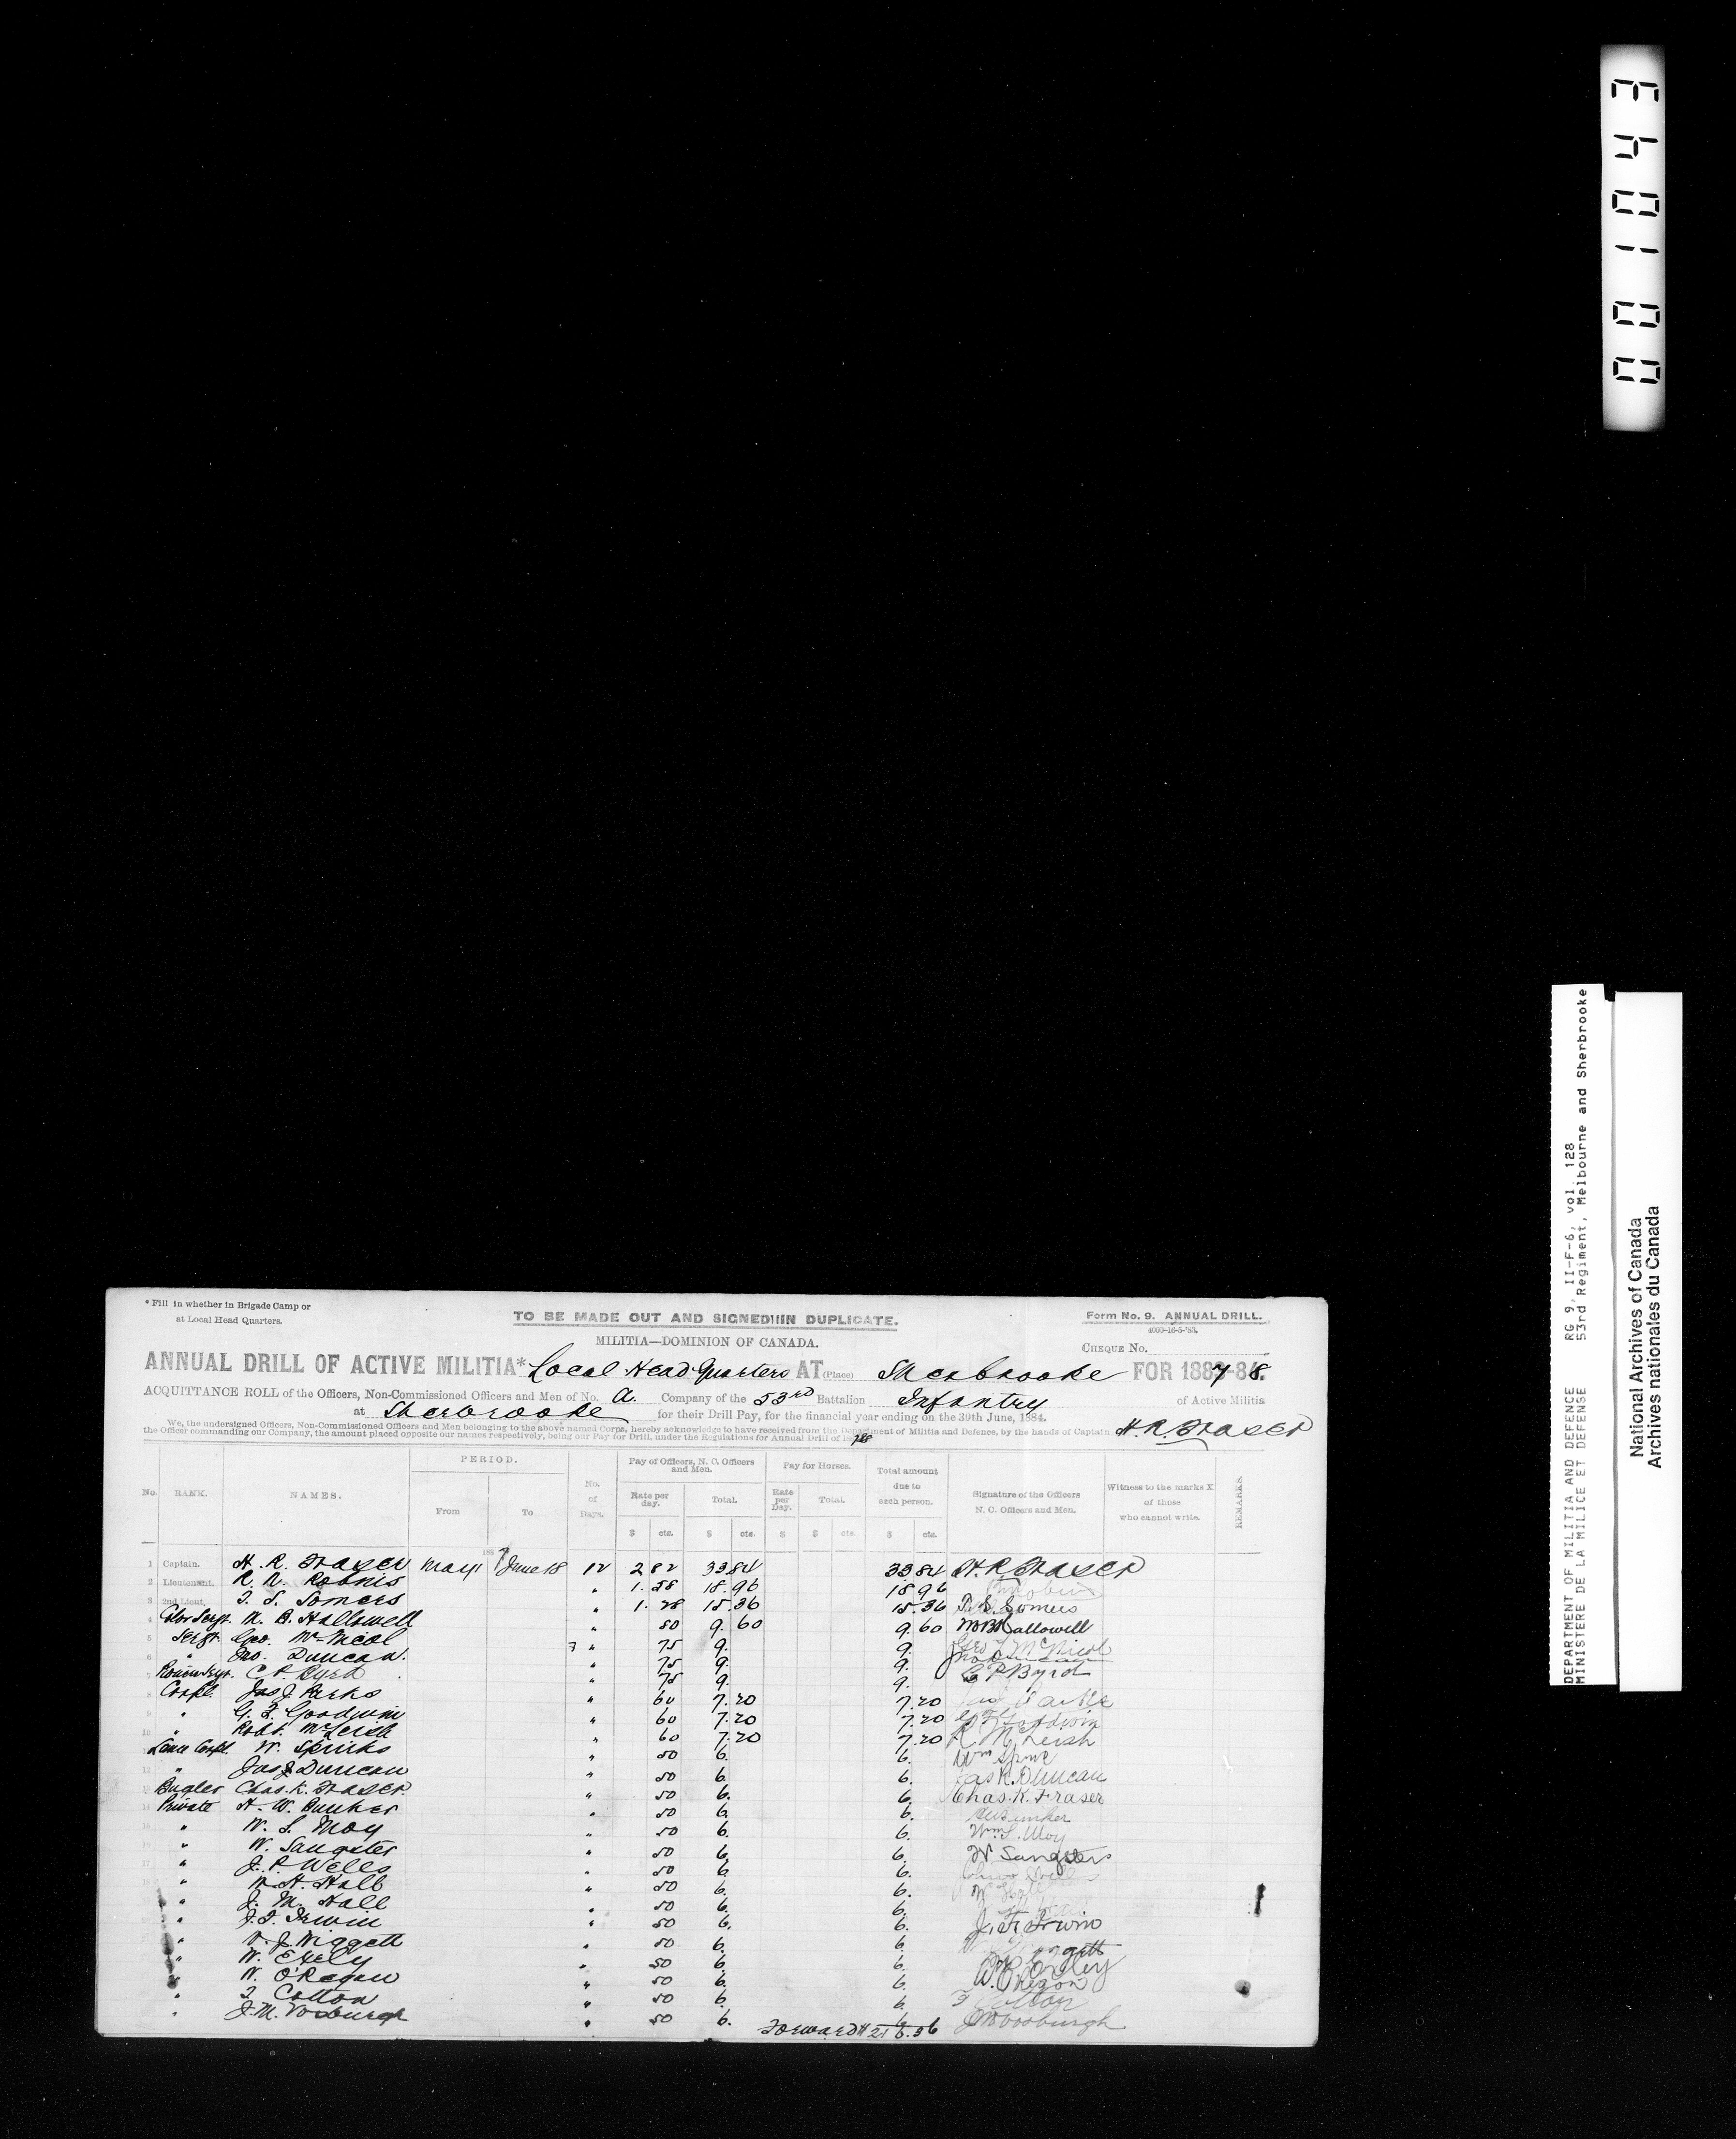 001043
* Fill in whether in Brigade Camp or
at Local Head Quarters.
TO BE MADE OUT AND SIGNED IN DUPLICATE.
Form No. 9. ANNUAL DRILL.
4000-16-5-'83.
MILITIA—DOMINION OF CANADA.
CHEQUE No.
ANNUAL DRILL OF ACTIVE MILITIA* Local Head Quarters AT (Place) Sherbrooke FOR 1887-8.
ACQUITTANCE ROLL of the Officers, Non-Commissioned Officers and Men of No. A. Company of the 53rd Battalion Infantry of Active Militia
at Sherbrooke for their Drill Pay, for the financial year ending on the 30th June, 1884.
We, the undersigned Officers, Non-Commissioned Officers and Men belonging to the above named Corps, hereby acknowledge to have received from the Department of Militia and Defence, by the hands of Captain H.R. Fraser
the Officer commanding our Company, the amount placed opposite our names respectively, being our Pay for Drill, under the Regulations for Annual Drill of
No. RANK. NAMES. PERIOD. From To No. of Days. Pay of Officers, N. C. Officers and Men. Rate per day. Total. Pay for Horses. Rate per Day. Total. Total amount due to each person. Signature of the Officers N. C. Officers and Men. Witness to the marks X of those who cannot write. REMARKS.
$ cts. $ cts. $ $ cts. $ cts.
1 Captain. H. R. Fraser May 1 June 18 12 2 82 33 84 33 84 H. R. Fraser
2 Lieutenant. R. N. Robins " 1. 58 18. 96 18 96
3 2nd Lieut. T. S. Somers " 1. 28 15. 36 15. 36 T. S. Somers
4 Color Sergt. M. B. Hallowell " 80 9. 60 9. 60 M B Hallowell
5 Sergt. Geo. McNicol " 75 9. 9. Geo McNicol
6 " Jno. Duncan. " 75 9. 9.
7 C P Byrd " 75 9. 9. C P Byrd
8 Corpl. Jas J. Parks " 60 7. 20 7. 20
9 " G. F. Goodwin " 60 7. 20 7. 20
10 " Robt. McLeish " 60 7. 20 7. 20 R McLeish
Lance Corpl. W. Spinks " 50 6. 6. Wm
12 " Jas Duncan " 50 6. 6. Jas K. Duncan
13 Bugler Chas. K. Fraser. " 50 6. 6. Chas. K. Fraser
14 Private H. W. Bunker " 50 6. 6. Bunker
" W. S. Moy " 50 6. 6. Wm S. Moy
" W. Sangster " 50 6. 6. W Sangster
" J. P. Wells " 50 6. 6.
" W. H. Hall " 50 6. 6.
" J. M. Hall " 50 6. 6.
" J. F. Irwin " 50 6. 6. J. F. Irwin
" V. J. Wiggett " 50 6. 6.
" W. Exely " 50 6. 6.
" W. O'Regan " 50 6. 6. W. O'Regan
" T. Cotton " 50 6. 6. T Cotton
" J. M. Vosburgh " 50 6. 6. J M Vosburgh
Forward $ 215.36
DEPARTMENT OF MILITIA AND DEFENCE RG 9, II-F-6, vol. 128
MINISTERE DE LA MILICE ET DEFENSE 53rd Regiment, Melbourne and Sherbrooke
National Archives of Canada
Archives nationales du Canada